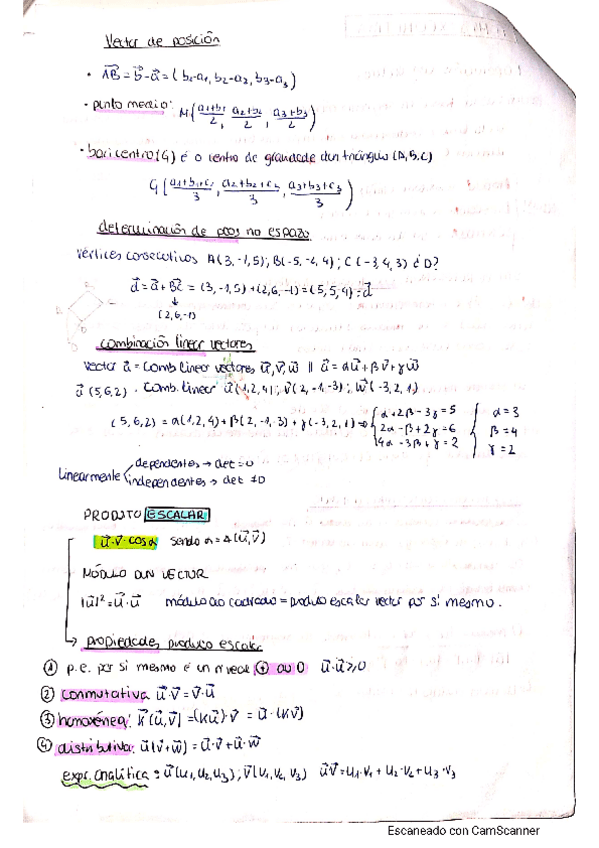 Vector de posición
• AB⃗ = b⃗ - a⃗ = (b₁-a₁, b₂-a₂, b₃-a₃)
• punto medio: M((a₁+b₁)/2, (a₂+b₂)/2, (a₃+b₃)/2)
• baricentro (G) é o centro de gravidade dun triángulo (A,B,C)
G((a₁+b₁+c₁)/3, (a₂+b₂+c₂)/3, (a₃+b₃+c₃)/3)
determinación de ptos no espazo
Vértices consecutivos A(3,-1,5); B(-5,-2,4); C(-3,4,3) ¿D?
d⃗ = a⃗ + BC⃗ = (3,-1,5)+(2,6,-1) = (5,5,4) = d⃗
↓
(2,6,-1)
combinación linear vectores
vector a⃗ = comb. linear vectores u⃗, v⃗, w⃗ || a⃗ = αu⃗ + βv⃗ + γw⃗
a⃗ (5,6,2) . comb. linear u⃗(1,2,4); v⃗(2,-1,-3); w⃗(-3,2,1)
(5,6,2) = α(1,2,4)+β(2,-1,-3)+γ(-3,2,1) ⇒ { α+2β-3γ=5 { α=3
2α-β+2γ=6 β=4
4α-3β+γ=2 γ=2
Linearmente dependentes → det=0
independentes → det≠0
PRODUTO ESCALAR
u⃗·v⃗·cosα sendo α=∡(u⃗,v⃗)
MÓDULO DUN VECTOR
|u⃗|²=u⃗·u⃗ módulo ao cadrado = produto escalar vector por si mesmo.
propiedades produto escalar
① p.e. por si mesmo é un nreal ⊕ ou 0 u⃗·u⃗≥0
② conmutativa u⃗·v⃗=v⃗·u⃗
③ homoxénea: K(u⃗,v⃗)=(Ku⃗)·v⃗ = u⃗·(Kv⃗)
④ distributiva: u⃗(v⃗+w⃗)=u⃗·v⃗+u⃗·w⃗
expr. analítica: u⃗(u₁,u₂,u₃); v⃗(v₁,v₂,v₃) u⃗·v⃗=u₁·v₁+u₂·v₂+u₃·v₃
Escaneado con CamScanner